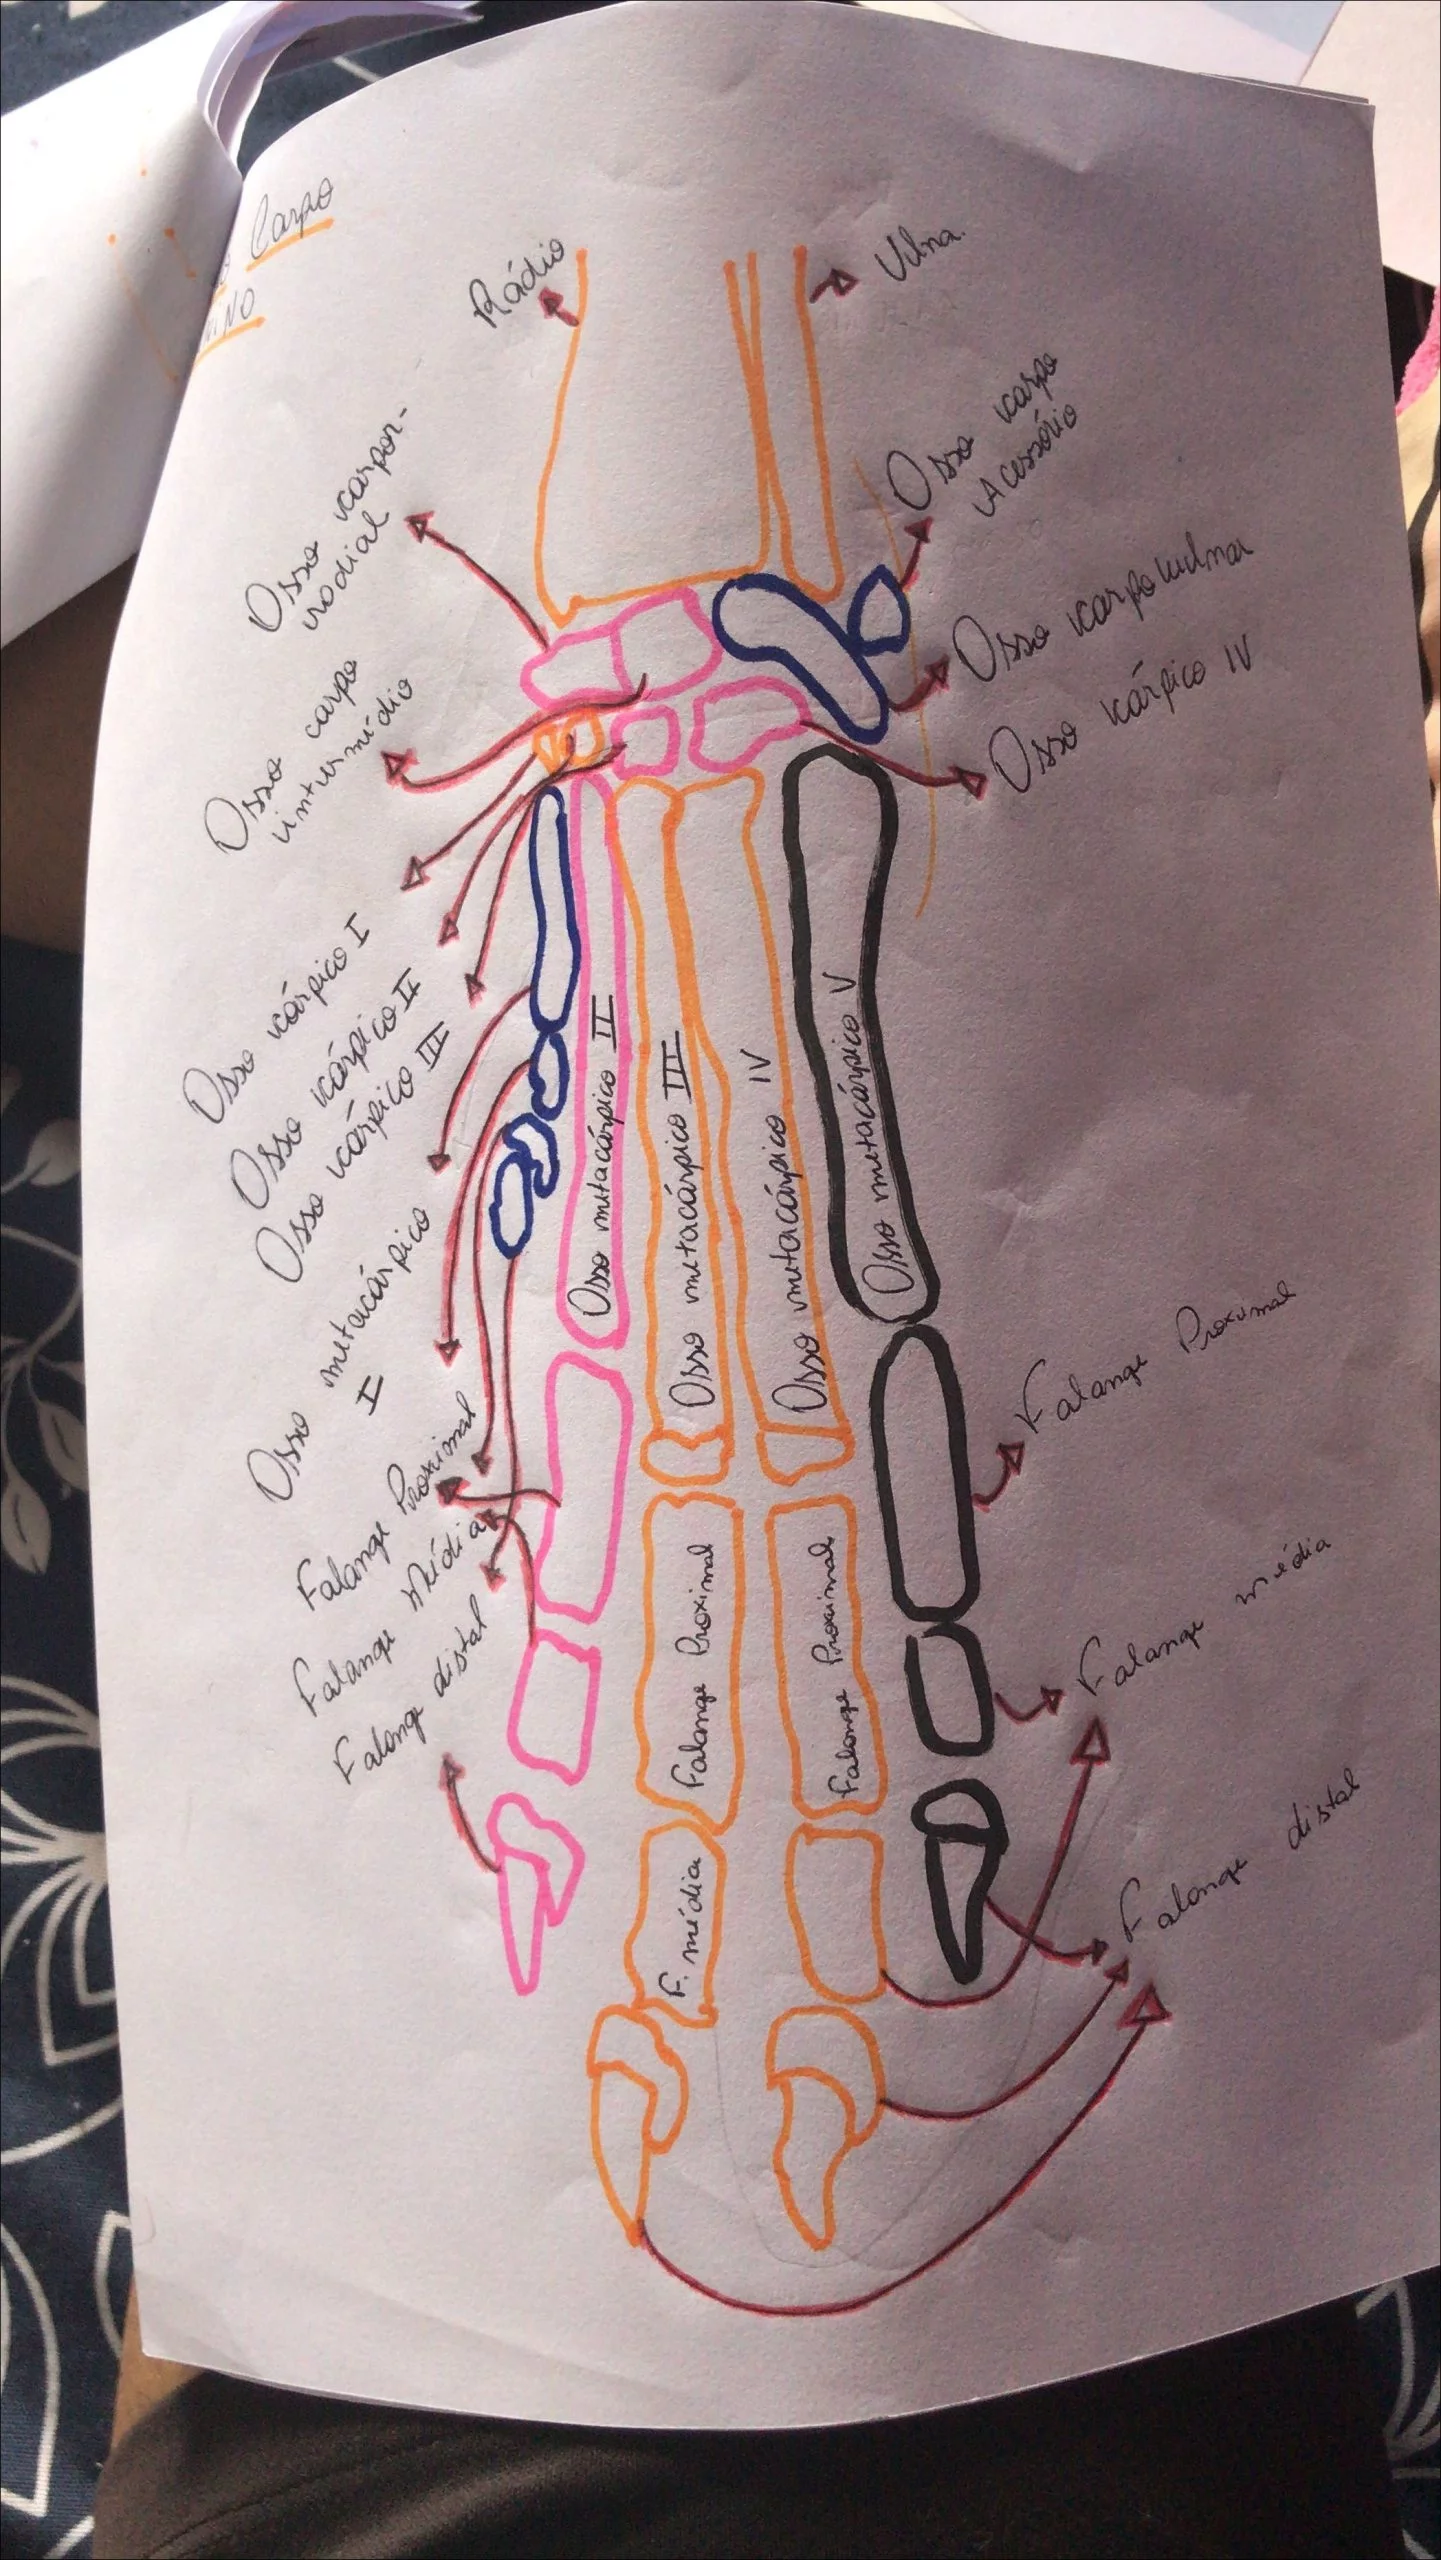 Carpo
Rádio
Ulna.
Osso carpor-
radial
Osso carpo
Acessório
Osso carpo
intermédio
Osso carpoulnar
Osso cárpico IV
Osso cárpico I
Osso cárpico II
Osso cárpico III
Osso metacárpico
I
Osso metacárpico II
Osso metacárpico III
Osso metacárpico IV
Osso metacárpico V
Falange Proximal
Falange Média
Falange distal
Falange Proximal
Falange Proximal
F. média
Falange Proximal
Falange média
Falange distal